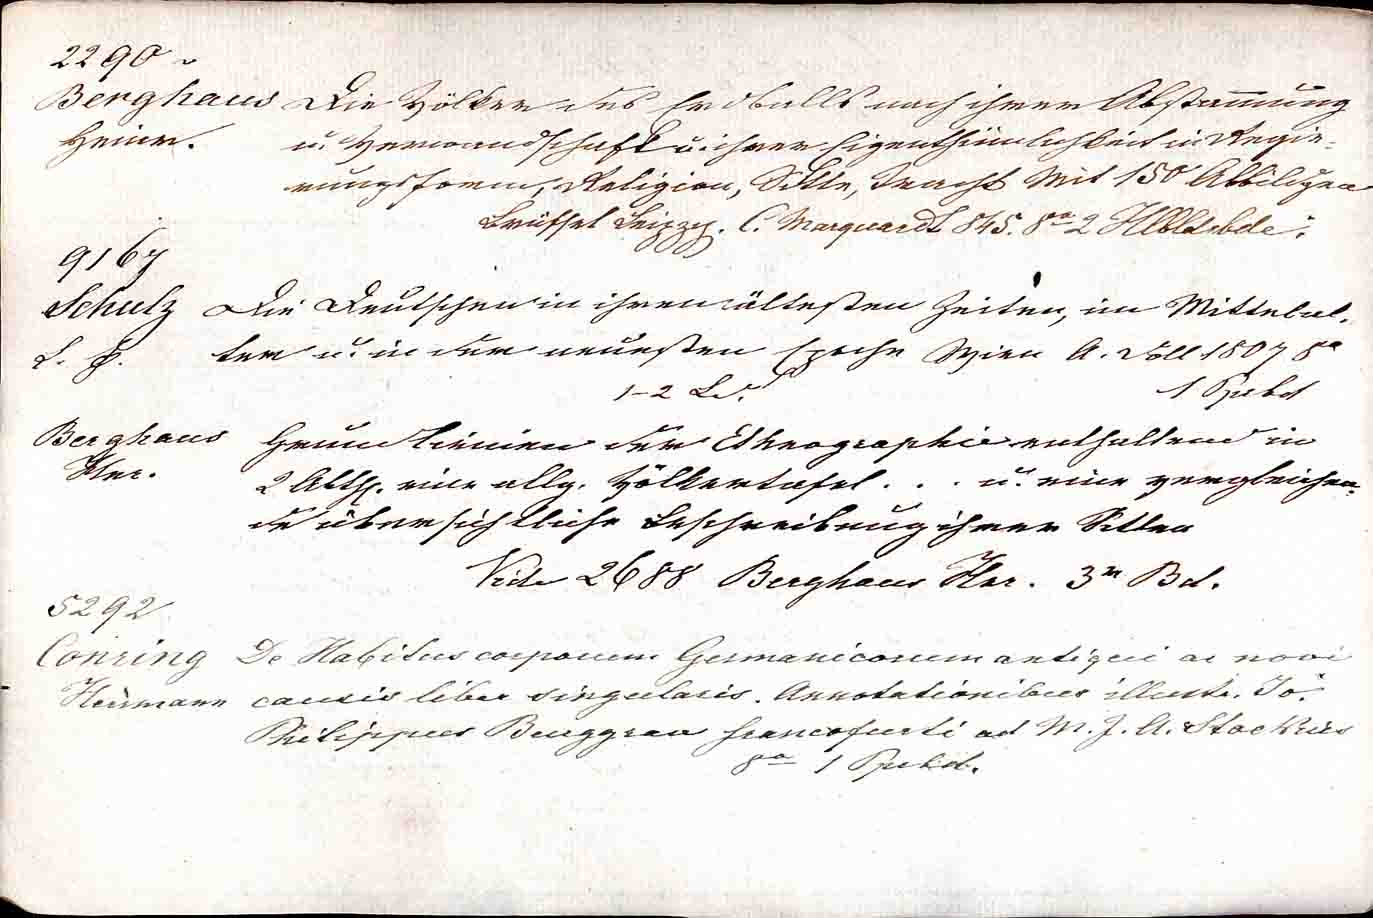 2290
Berghaus Die Völker des Erdballs nach ihrer Abstammung
Heinr. u. Verwandschaft u. ihrer Eigenthümlichkeit in Regie-
rungsform, Religion, Sitte, Tracht Mit 150 Abbildgen
Brüssel Leipzg. C. Marquardt 845. 8º 2 Hlbldrbde.
9167
Schulz Die Deutschen in ihren ältesten Zeiten, im Mittelal-
ter u. in der neuesten Epoche Wien A. Doll 1807 8º
1-2 Bd. 1 Ppbd
Berghaus Grundlinien der Ethnographie enthaltend in
Her. 2 Abth. eine allg. Völkertafel . . . u. eine vergleichen-
de übersichtliche Beschreibung ihrer Sitten
Vide 2688 Berghaus Her. 3n Bd.
5292
Conring De Habitus corporum Germanicorum antiqui ac novi
Herrmann causis liber singularis. Annotationibus illustr. Jo.
Philippus Burggrau Francofurti ad M. J. A. Stock
8º 1 Ppbd.